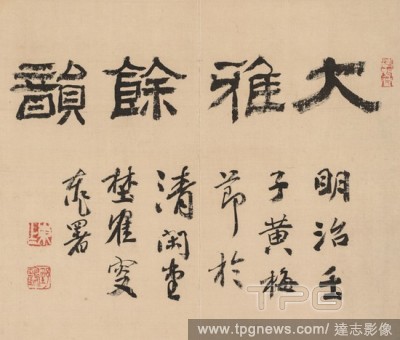 大雅餘韻
明治壬
子黃梅
節於
清閑堂
埜雀叟
署
TPG
www.tpgnews.com / 達志影像